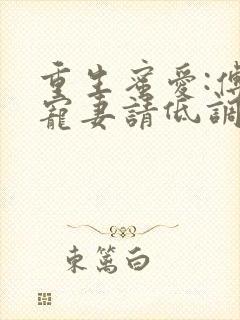 重生蜜愛:傅
寵妻請低調
東篱白